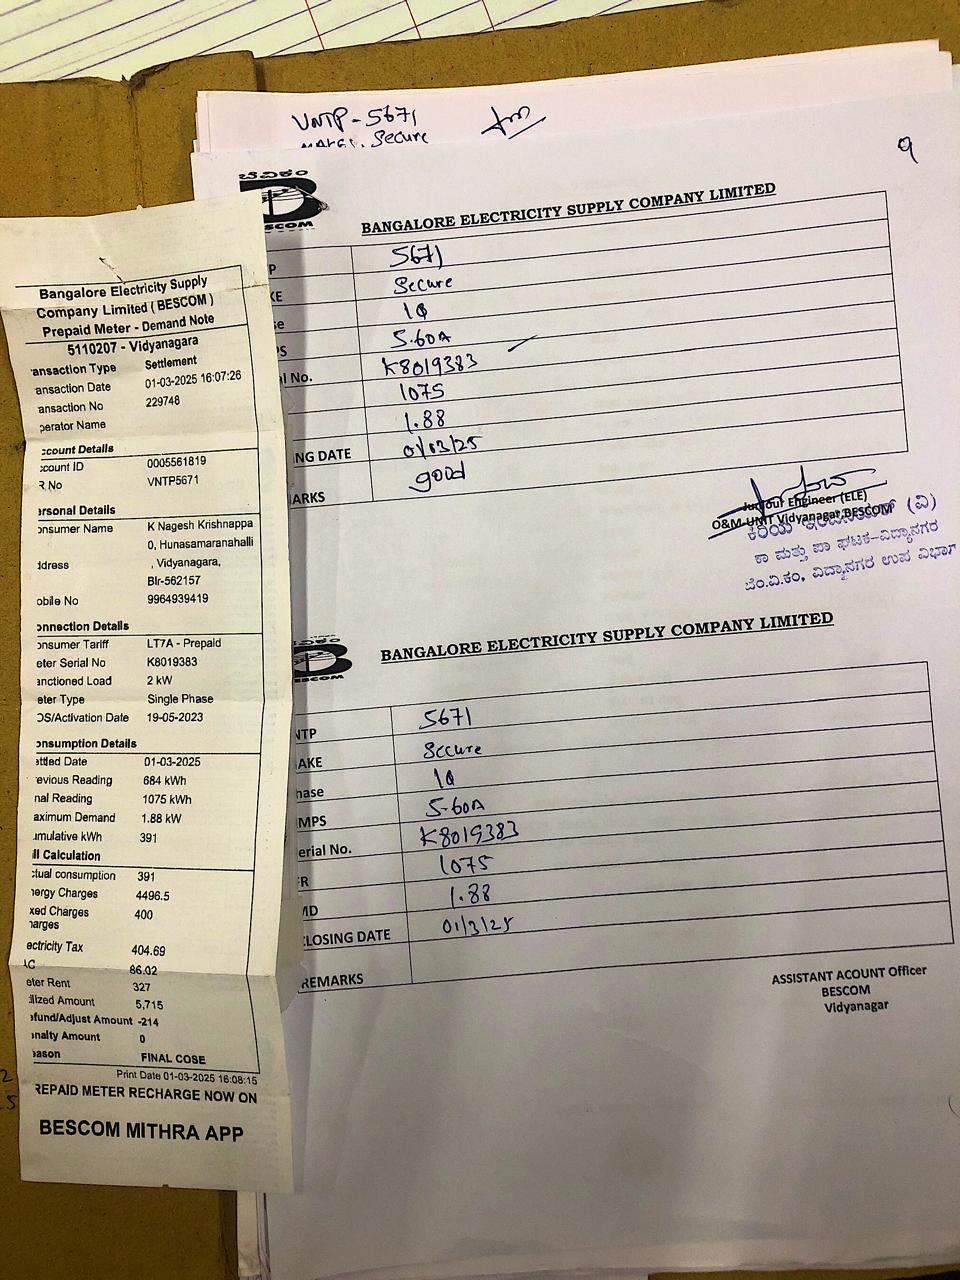 VNTP - 5671
MAKE: Secure
9
ಬೆವಿಕಂ
BESCOM
BANGALORE ELECTRICITY SUPPLY COMPANY LIMITED
P 5671
KE Secure
se 1Φ
PS 5-60A
l No. K8019383
1075
1.88
NG DATE 01/03/25
ARKS good
Junior Engineer (ELE)
O&M UNIT Vidyanagar, BESCOM
ಕಿರಿಯ ಇಂಜಿನಿಯರ್ (ವಿ)
ಕಾ ಮತ್ತು ಪಾ ಘಟಕ-ವಿದ್ಯಾನಗರ
ಬೆಂ.ವಿ.ಕಂ, ವಿದ್ಯಾನಗರ ಉಪ ವಿಭಾಗ
BESCOM
BANGALORE ELECTRICITY SUPPLY COMPANY LIMITED
NTP 5671
AKE Secure
hase 1Φ
MPS 5-60A
erial No. K8019383
R 1075
MD 1.88
LOSING DATE 01/3/25
REMARKS
ASSISTANT ACOUNT Officer
BESCOM
Vidyanagar
Bangalore Electricity Supply
Company Limited ( BESCOM )
Prepaid Meter - Demand Note
5110207 - Vidyanagara
ansaction Type Settlement
ansaction Date 01-03-2025 16:07:26
ansaction No 229748
perator Name
ccount Details
ccount ID 0005561819
R No VNTP5671
ersonal Details
onsumer Name K Nagesh Krishnappa
0, Hunasamaranahalli
ddress , Vidyanagara,
Blr-562157
obile No 9964939419
onnection Details
onsumer Tariff LT7A - Prepaid
eter Serial No K8019383
anctioned Load 2 kW
eter Type Single Phase
OS/Activation Date 19-05-2023
onsumption Details
ettled Date 01-03-2025
evious Reading 684 kWh
nal Reading 1075 kWh
aximum Demand 1.88 kW
umulative kWh 391
ill Calculation
ctual consumption 391
nergy Charges 4496.5
xed Charges 400
harges
ectricity Tax 404.69
AC 86.02
eter Rent 327
ilized Amount 5,715
efund/Adjust Amount -214
enalty Amount 0
eason FINAL COSE
Print Date 01-03-2025 16:08:15
REPAID METER RECHARGE NOW ON
BESCOM MITHRA APP